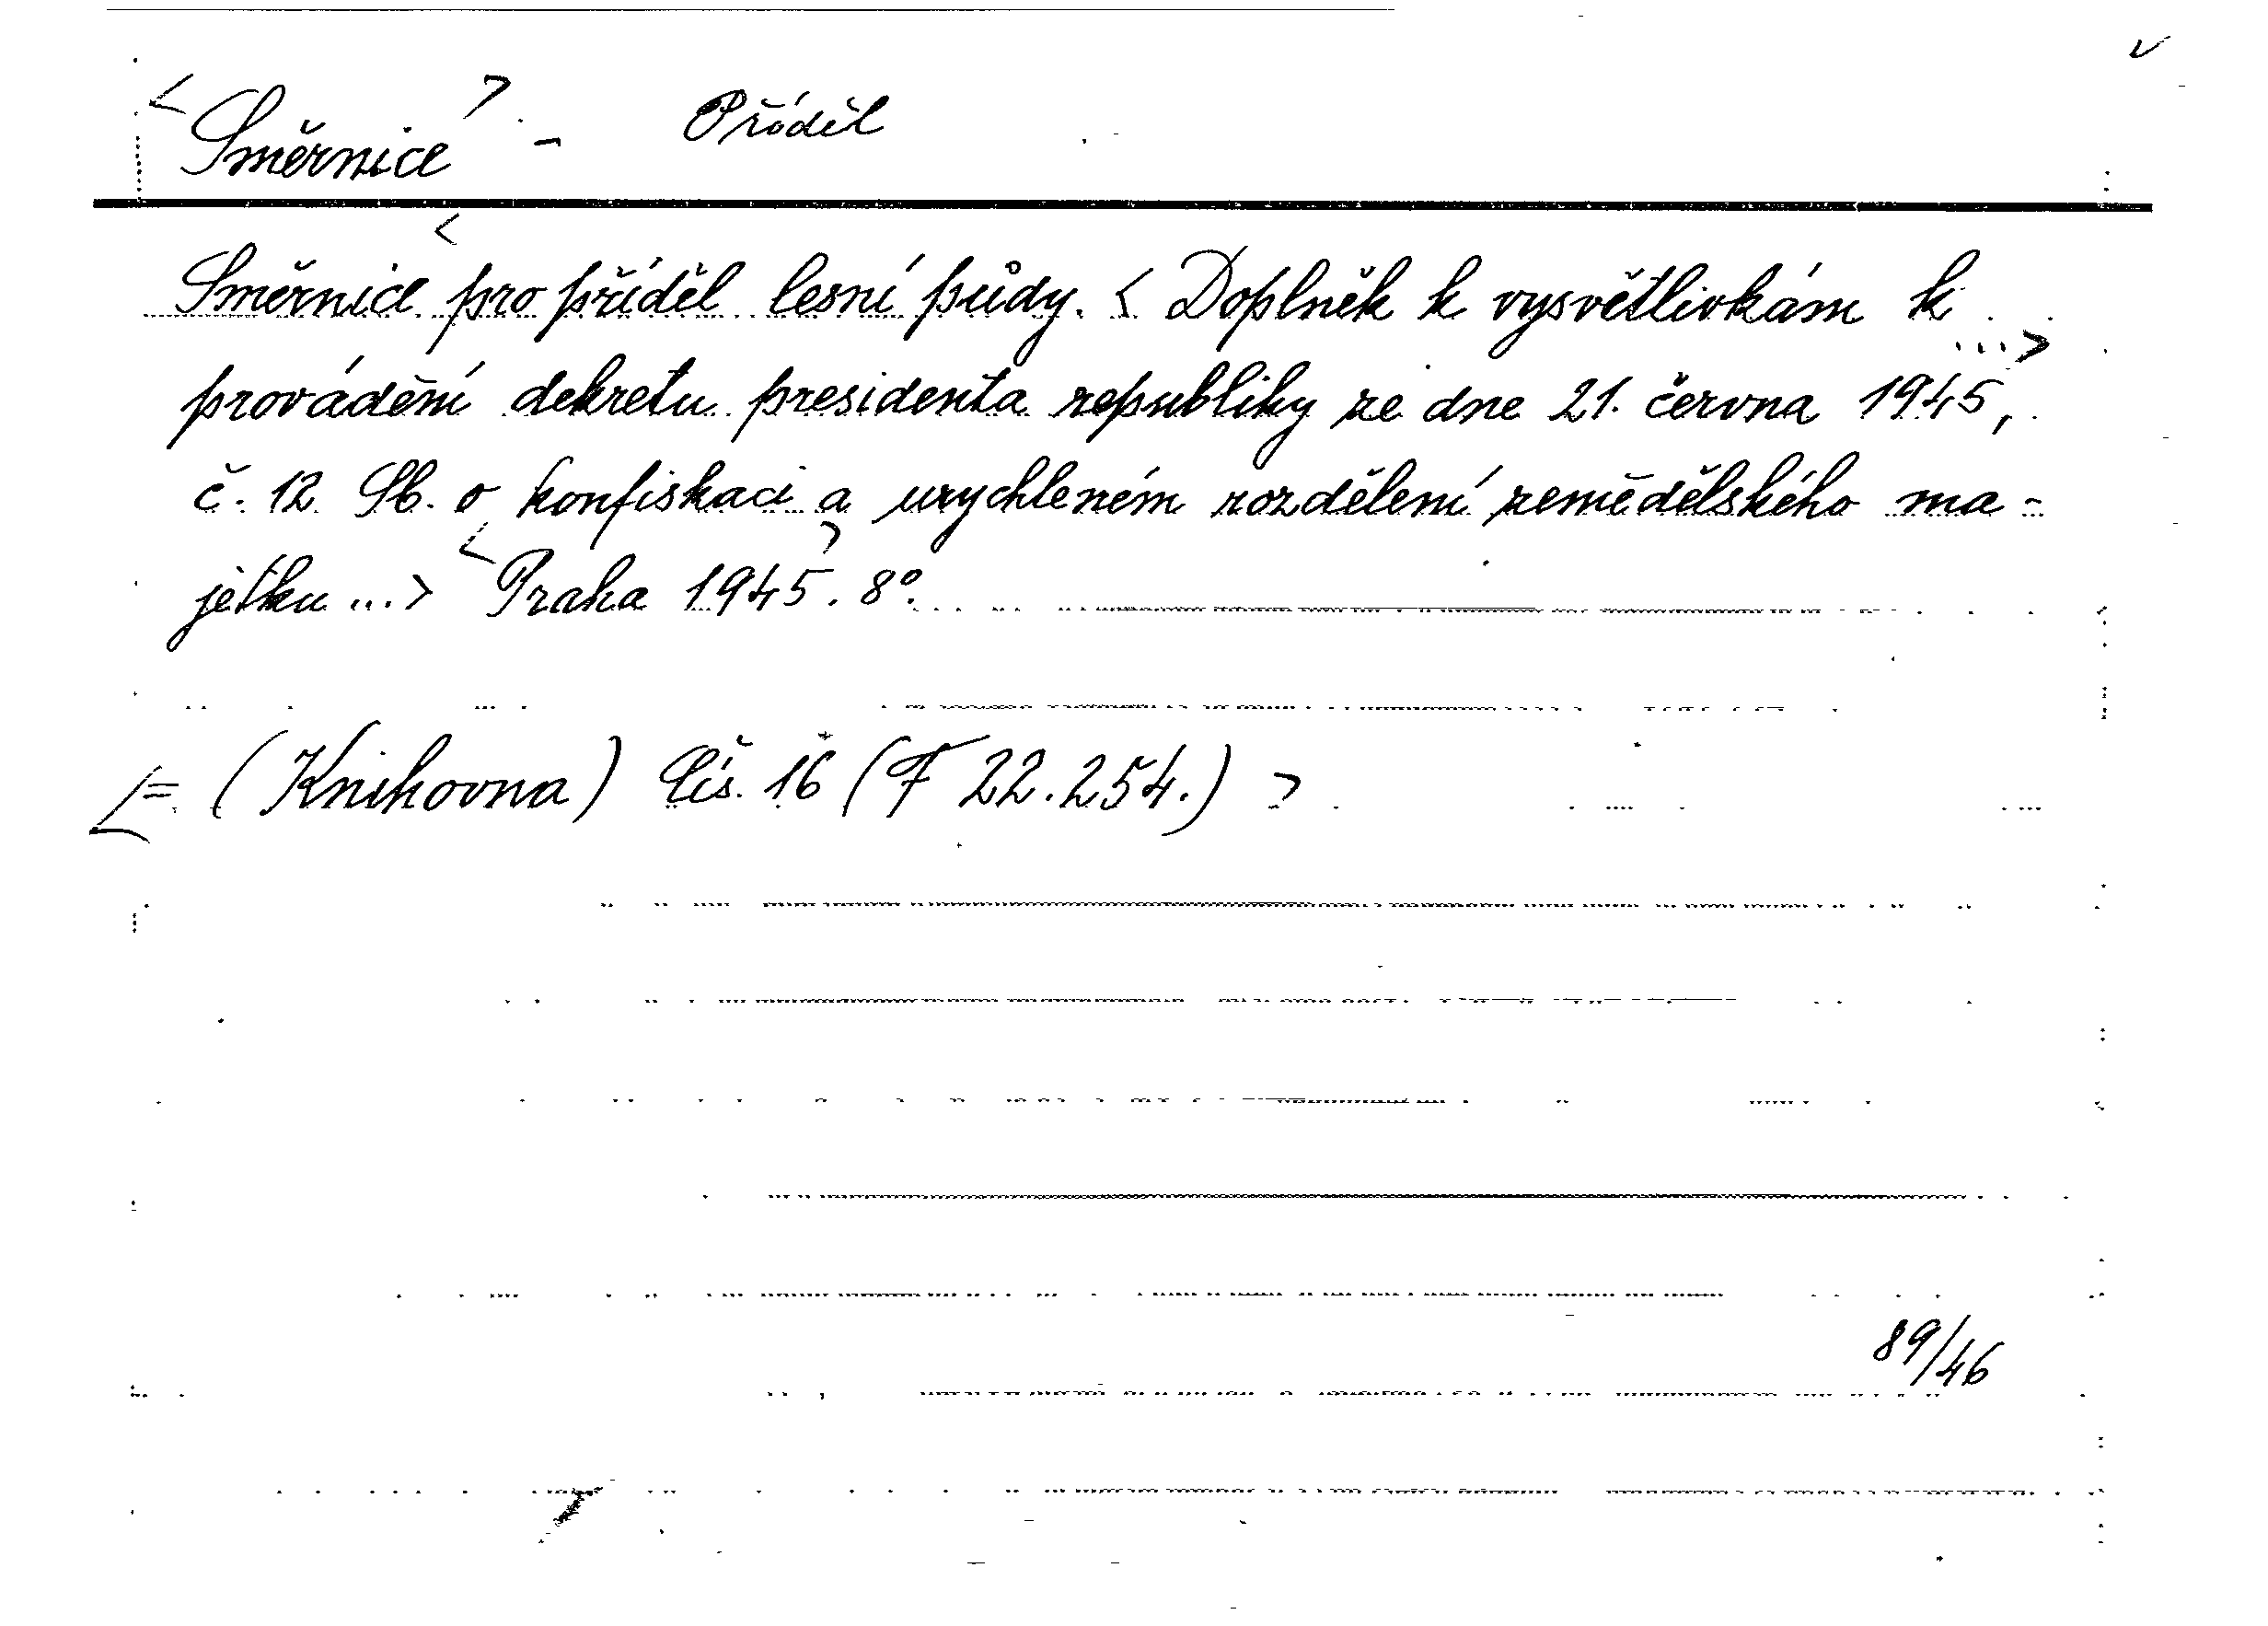 <Směrnice> - Příděl
Směrnice <pro příděl lesní půdy. < Doplněk k vysvětlivkám k ...>
provádění dekretu presidenta republiky ze dne 21. června 1945,
č. 12 Sb. o konfiskaci a urychleném rozdělení zemědělského ma-
jetku ...> <Praha 1945>. 8°.
<= (Knihovna) Čís. 16 (F 22.254.) >
89/46